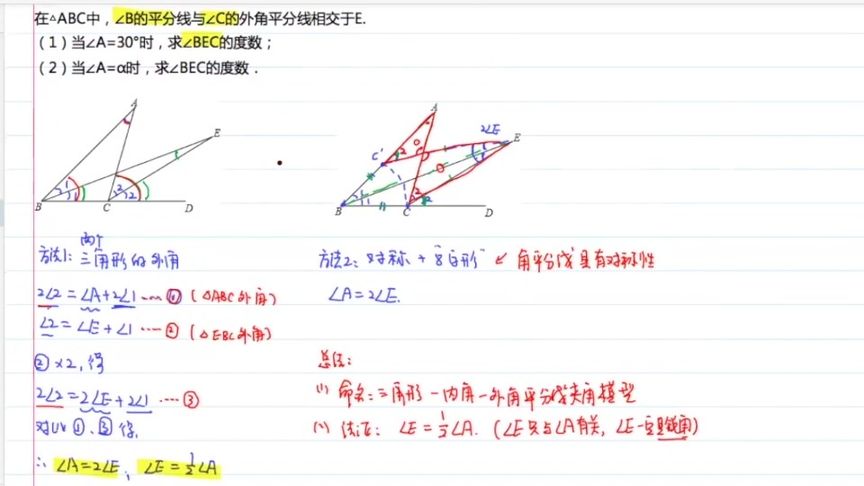 在△ABC中，∠B的平分线与∠C的外角平分线相交于E.
（1）当∠A=30°时，求∠BEC的度数；
（2）当∠A=α时，求∠BEC的度数．
A
E
B
C
D
1
1
2
2
A
2∠E
E
C'
B
C
D
2
2
2
方法1: 两个三角形的外角
2∠2=∠A+2∠1 ---- ① (△ABC外角)
∠2=∠E+∠1 ---- ② (△EBC外角)
②×2, 得
2∠2=2∠E+2∠1 ---- ③
对比①、③得,
∴ ∠A=2∠E, ∠E=1/2∠A
方法2: 对称+"8字形" ↙ 角平分线具有对称性
∠A=2∠E.
总结:
(1) 命名: 三角形一内角一外角平分线夹角模型
(2) 结论: ∠E=1/2∠A. (∠E只与∠A有关, ∠E一定是锐角)